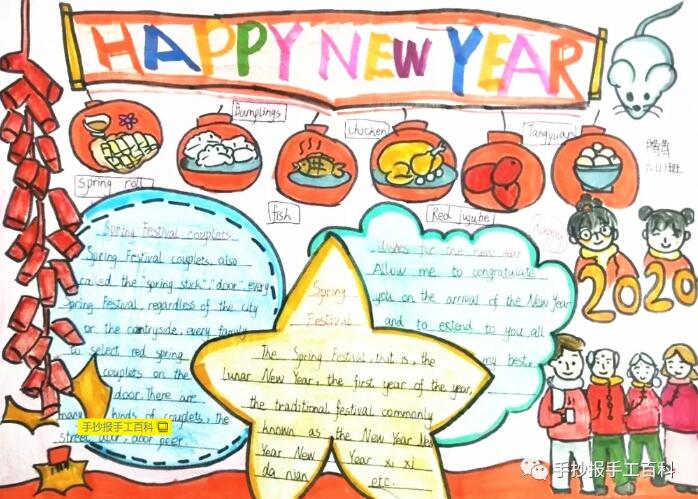 HAPPY NEW YEAR
Dumplings
chicken
Tangyuan
Spring roll
fish
Red jujube
happy
2020
Spring Festival couplets
Spring Festival couplets, also
called the "spring stick", "door", every
Spring Festival, regardless of the city
or the countryside, every family
to select red spring
couplets on the
door. There are
many kinds of couplets, the
street door, door peer
Wishes for the new year
Allow me to congratulate
you on the arrival of the New Year
and to extend to you all
my best
Spring
Festival
The Spring Festival, that is, the
Lunar New Year, the first year of the year,
the traditional festival commonly
known as the New Year
Year New Year xi xi
da nian etc.
手抄报手工百科
手抄报手工百科